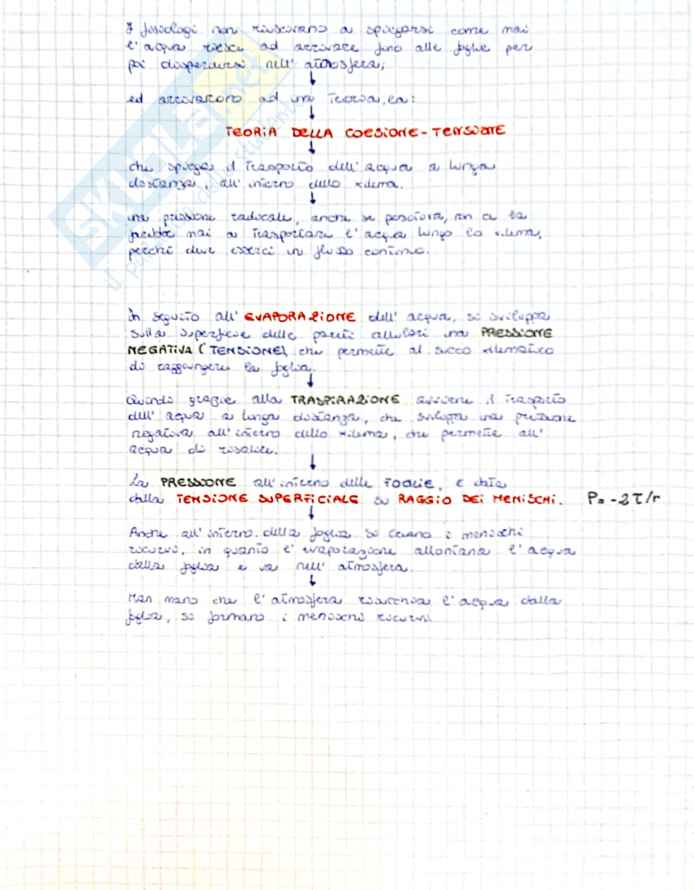 I fisiologi non riuscivano a spiegarsi come mai
l'acqua riesce ad arrivare fino alle foglie per
poi disperdersi nell'atmosfera;
ed arrivarono ad una teoria, la:
TEORIA DELLA COESIONE-TENSIONE
che spiega il trasporto dell'acqua a lunga
distanza, all'interno dello xilema.
una pressione radicale, anche se positiva, non ce la
farebbe mai a trasportare l'acqua lungo lo xilema,
perché deve esserci un flusso continuo.
In seguito all'EVAPORAZIONE dell'acqua, si sviluppa
sulla superficie delle pareti cellulari una PRESSIONE
NEGATIVA (TENSIONE) che permette al succo xilematico
di raggiungere la foglia.
Quindi grazie alla TRASPIRAZIONE avviene il trasporto
dell'acqua a lunga distanza, che sviluppa una pressione
negativa all'interno dello xilema, che permette all'
acqua di risalire.
La PRESSIONE all'interno delle FOGLIE, è data
dalla TENSIONE SUPERFICIALE su RAGGIO DEI MENISCHI. P= -2τ/r
Anche all'interno della foglia si creano i menischi
ricurvi, in quanto l'evaporazione allontana l'acqua
dalla foglia e va nell'atmosfera.
Man mano che l'atmosfera risucchia l'acqua dalla
foglia, si formano i menischi ricurvi.
SKUOLA.net